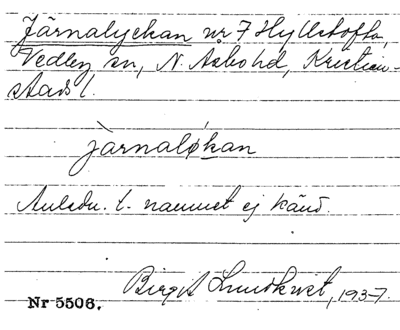 Järnalyckan nr 7 Hyllstofta,
Vedby sn, N. Åsbo hd, Kristian-
stads l.
jàrnalǿkan
Anledn. t. namnet ej känd.
Birgit Lundkvist, 1937.
Nr 5506.